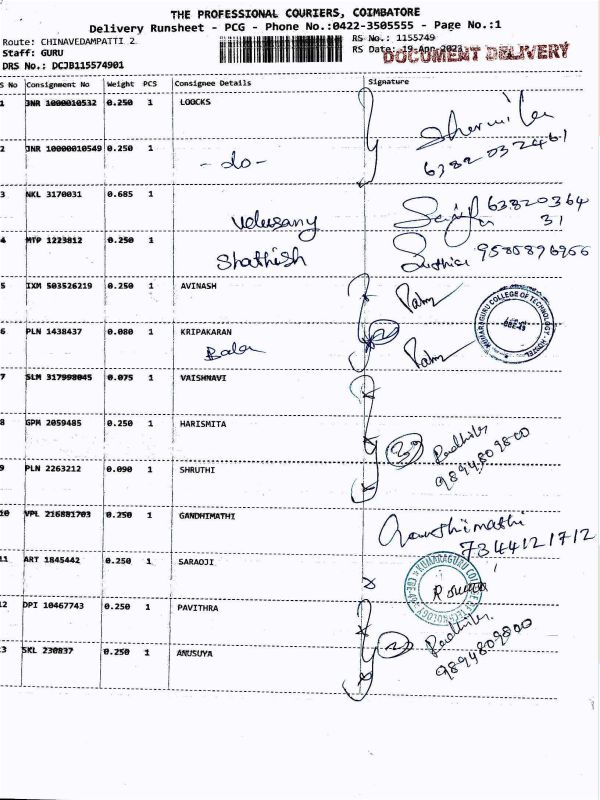 THE PROFESSIONAL COURIERS, COIMBATORE
Delivery Runsheet - PCG - Phone No.:0422-3505555 - Page No.:1
Route: CHINAVEDAMPATTI 2
RS No.: 1155749
Staff: GURU
RS Date: 19-Apr-2023
DOCUMENT DELIVERY
DRS No.: DCJB115574901
S No Consignment No Weight PCS Consignee Details Signature
1 JNR 1000010532 0.250 1 LOOCKS
6382032461
2 JNR 10000010549 0.250 1
- do -
3 NKL 3170031 0.685 1
Velusany
63820364
31
4 MTP 1223812 0.250 1
Shathish
9585896966
5 IXM 503526219 0.250 1 AVINASH
KUMARAGURU COLLEGE OF TECHNOLOGY HOSTEL
6 PLN 1438437 0.080 1 KRIPAKARAN
Bala
7 SLM 317998045 0.075 1 VAISHNAVI
8 GPM 2059485 0.250 1 HARISMITA
9 PLN 2263212 0.090 1 SHRUTHI
9894809800
10 VPL 216881703 0.250 1 GANDHIMATHI
Gandhimathi
7344121712
11 ART 1845442 0.250 1 SARAOJI
KUMARAGURU COLLEGE OF TECHNOLOGY
12 DPI 10467743 0.250 1 PAVITHRA
13 SKL 230837 0.250 1 ANUSUYA
9894809800